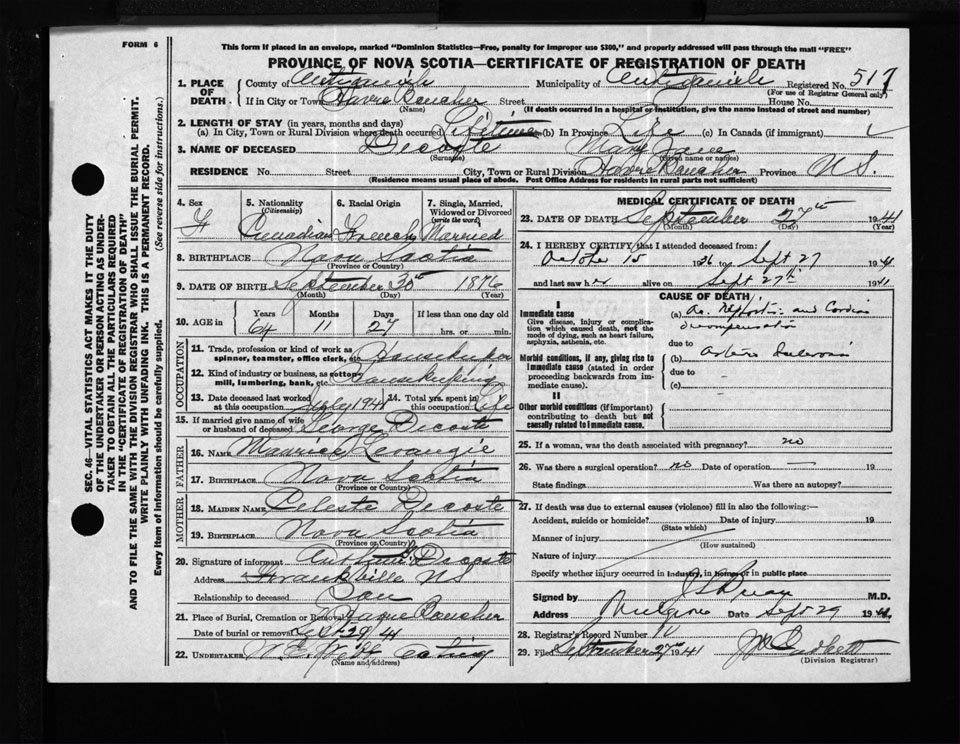 FORM 6
This form if placed in an envelope, marked "Dominion Statistics—Free, penalty for improper use $300," and properly addressed will pass through the mail "FREE"
PROVINCE OF NOVA SCOTIA—CERTIFICATE OF REGISTRATION OF DEATH
SEC. 46—VITAL STATISTICS ACT MAKES IT THE DUTY
OF THE UNDERTAKER OR PERSON ACTING AS UNDER-
TAKER TO OBTAIN ALL THE PARTICULARS REQUIRED
IN THE "CERTIFICATE OF REGISTRATION OF DEATH"
AND TO FILE THE SAME WITH THE DIVISION REGISTRAR WHO SHALL ISSUE THE BURIAL PERMIT.
WRITE PLAINLY WITH UNFADING INK. THIS IS A PERMANENT RECORD.
Every item of information should be carefully supplied. (See reverse side for instructions.)
1. PLACE OF DEATH County of Antigonish Municipality of Antigonish Registered No. 517
(For use of Registrar General only)
If in City or Town Havre Boucher Street House No.
(Name) (If death occurred in a hospital or institution, give the name instead of street and number)
2. LENGTH OF STAY (in years, months and days)
(a) In City, Town or Rural Division where death occurred Lifetime (b) In Province Life (c) In Canada (if immigrant)
3. NAME OF DECEASED Decoste Mary Jane
(Surname) (Given name or names)
RESIDENCE No. Street City, Town or Rural Division Havre Boucher Province N.S.
(Residence means usual place of abode. Post Office Address for residents in rural parts not sufficient)
4. Sex F
5. Nationality (Citizenship) Canadian
6. Racial Origin French
7. Single, Married, Widowed or Divorced (write the word) Married
8. BIRTHPLACE Nova Scotia
(Province or Country)
9. DATE OF BIRTH September 30th 1876
(Month) (Day) (Year)
10. AGE in Years Months Days If less than one day old
64 11 27 hrs. or min.
OCCUPATION
11. Trade, profession or kind of work as spinner, teamster, office clerk, etc. Housekeeper
12. Kind of industry or business, as cotton mill, lumbering, bank, etc. Housekeeping
13. Date deceased last worked at this occupation July 1941 14. Total yrs. spent in this occupation Life
15. If married give name of wife or husband of deceased George Decoste
FATHER
16. NAME Levangie
17. BIRTHPLACE Nova Scotia
(Province or Country)
MOTHER
18. MAIDEN NAME Celeste Decoste
19. BIRTHPLACE Nova Scotia
(Province or Country)
20. Signature of informant Decoste
Address Frankville NS
Relationship to deceased Son
21. Place of Burial, Cremation or Removal Havre Boucher
Date of burial or removal Sept 29/41
22. UNDERTAKER
(Name and address)
MEDICAL CERTIFICATE OF DEATH
23. DATE OF DEATH September 27th 1941
(Month) (Day) (Year)
24. I HEREBY CERTIFY that I attended deceased from:
October 15 1936 to Sept 27 1941
and last saw her alive on Sept 27th 1941
CAUSE OF DEATH
I
Immediate cause
Give disease, injury or complication which caused death, not the mode of dying, such as heart failure, asphyxia, asthenia, etc.
(a) and Cardiac decompensation
due to
Morbid conditions, if any, giving rise to Immediate cause (stated in order proceeding backwards from immediate cause).
(b)
due to —
(c)
II
Other morbid conditions (if important) contributing to death but not causally related to immediate cause.
25. If a woman, was the death associated with pregnancy? no
26. Was there a surgical operation? no Date of operation — 19
State findings Was there an autopsy?
27. If death was due to external causes (violence) fill in also the following:—
Accident, suicide or homicide? Date of injury 19
(State which)
Manner of injury
(How sustained)
Nature of injury
Specify whether injury occurred in industry, in home or in public place
Signed by M.D.
Address Mulgrave Date Sept 29 1941
28. Registrar's Record Number
29. Filed September 27 1941
(Division Registrar)